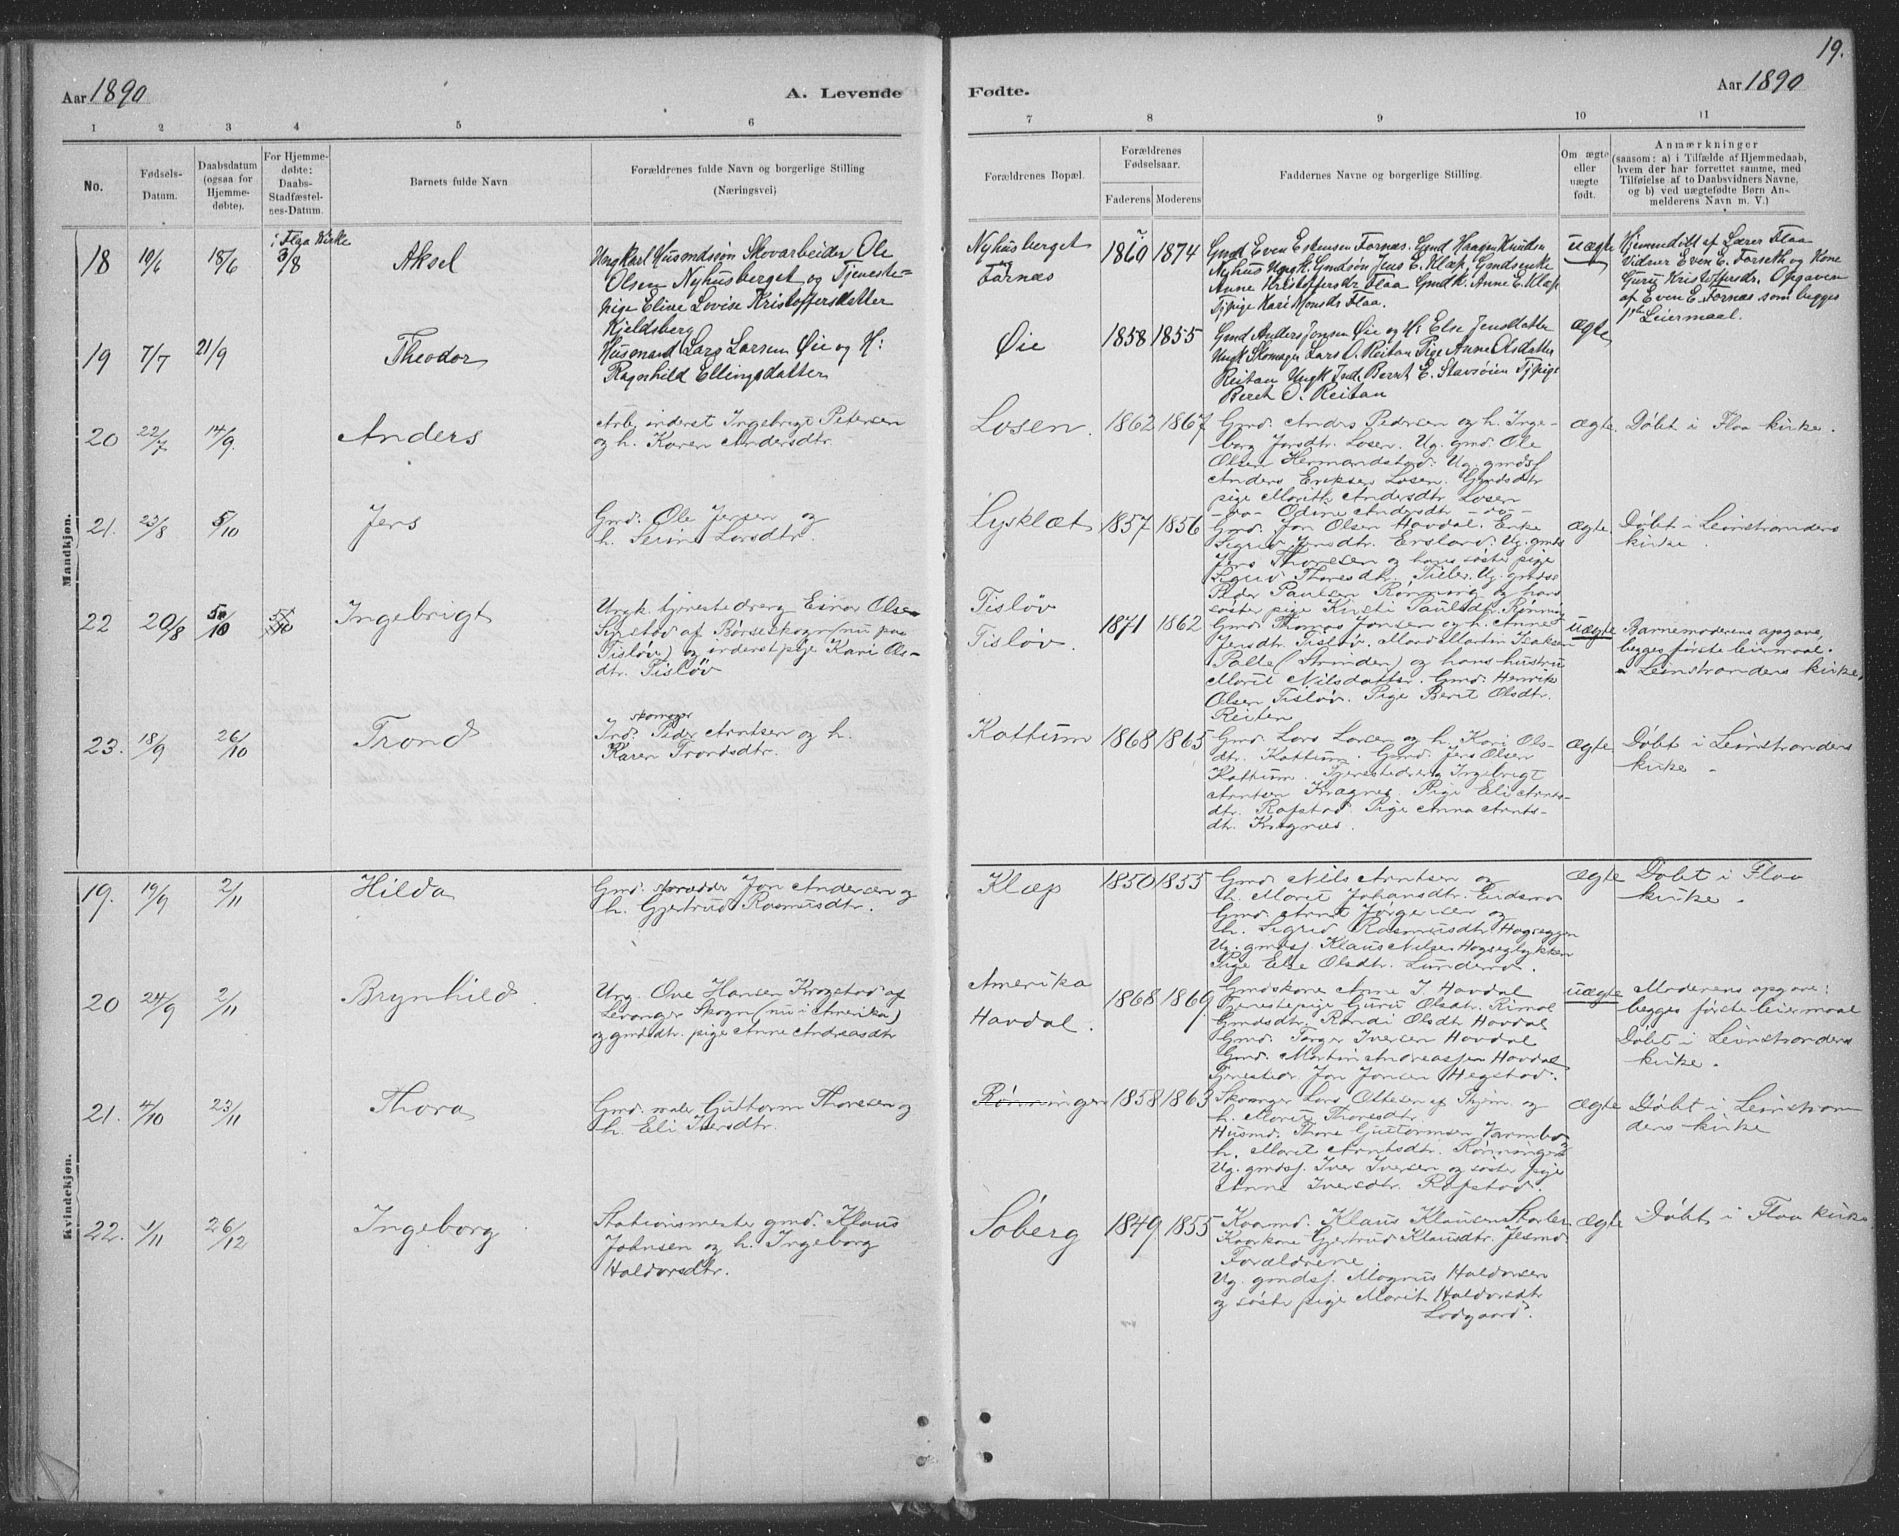 19.
Aar 1890
A. Levende
Fødte.
Aar 1890
1 2 3 4 5 6 7 8 9 10 11
No.
Fødsels-
Datum.
Daabsdatum
(ogsaa for
Hjemme-
døbte).
For Hjemme-
døbte:
Daabs-
Stadfæstel-
ses-Datum.
Barnets fulde Navn
Forældrenes fulde Navn og borgerlige Stilling
(Næringsvei)
Forældrenes Bopæl.
Forældrenes
Fødselsaar.
Faderens Moderens
Faddernes Navne og borgerlige Stilling.
Om ægte
eller
uægte
født.
Anmærkninger
(saasom: a) i Tilfælde af Hjemmedaab,
hvem der har forrettet samme, med
Tilføielse af to Daabsvidners Navne,
og b) ved uægtefødte Børn An-
melderens Navn m. V.)
Mandkjøn.
18 10/6 18/6
i Flaa Kirke
3/8
Aksel
Ungkarl Husmdssøn Skovarbeider Ole
Olsen Nyhusberget og Tjeneste-
pige Eline Lovise Kristoffersdatter
Kjeldsberg
Nyhusberget
og
Fornæs
1860 1874
Gmd Even Estensen Fornæs. Gmd Haagen Knudsen
Nyhus Ungk. Gmdsøn Jens E. Klæp. Gmdsenke
Anne Kristoffersdr Flaa Gmdk. Anne E. Klæp
Tjpige Kari Monsdr Flaa.
uægte
Hjemmedøbt af Lærer Flaa
Vidner Even E. Forseth og Kone
Guru Kristoffersdr. Opgaven
af Even E. Fornæs som begges
1ste Leiermaal.
19 7/7 21/9
Theodor
Husmand Lars Larsen Øie og H:
Ragnhild Ellingsdatter
Øie
1858 1855
Gmd Anders Jonsen Øie og H: Else Jensdatter
Ungk Skomager Lars O. Reitan Pige Anne Olsdatter
Reitan Ungk Ind. Bernt E. Stavsøien Tjpige
Beret O. Reitan
ægte
20 22/7 14/9.
Anders
Arb. inderst Ingebrigt Petersen
og h. Karen Andersdtr.
Losen.
1862 1867
Gmd. Anders Pedersen og h. Inge-
borg Jonsdtr. Losen. Ug. gmd. Ole
Olsen Hermanstad. Ug. gmdsf
Anders Eriksen Losen. Gmdsdtr
pige Marith Andersdtr. Losen
-do- Odine Andersdtr -do-
ægte.
Døbt i Flaa kirke.
21. 23/8 5/10
Jens
Gmd. Ole Jensen og
h. Serine Larsdtr.
Lysklæt
1857 1856
Gmd. Jon Olsen Havdal. Enke
Sigrid Jensdtr. Ersland. Ug. gmds
Jens Thoresen og hans søster pige
Sigrid Thoresdtr. Tiller. Ug. gmdss
Peder Paulsen Rønning og hans
søster pige Kirsti Paulsdtr. Rønning
ægte
Døbt i Leinstrandens
kirke.
22 20/8 5/10 5/10
Ingebrigt
Ungk. tjenestedreng Einar Olsen
Syrstad af Børseskogn (nu paa
Tisløv) og inderstpige Kari Ols-
dtr. Tisløv
Tisløv
Tisløv.
1871 1862
Gmd. Thomas Jonsen og h. Anne
Jensdtr. Tisløv. Mand Martin Isaksen
Palle (Strinden) og hans hustru
Marit Nilsdatter. Gmd. Henrik
Olsen Tisløv. Pige Berit Olsdtr.
Reiten
uægte
Barnemoderens opgave,
begges første leiermaal.
Leinstrandens kirke.
23. 18/9 26/10
Trond
skomager
Ind. Peder Arntsen og h.
Karen Trondsdtr.
Kattum
1868 1865
Gmd. Lars Larsen og h. Kari Ols-
dtr. Kattum. Gmd. Jens Olsen
Kattum. Tjenestedreng Ingebrigt
Arntsen Kregnes. Pige Eli Arnts-
dtr. Rafstad. Pige Anna Arnts-
dtr. Kregnæs.
ægte
Døbt i Leinstrandens
kirke.
Kvindekjøn.
19. 19/9 2/11
Hilda
Gmd. skrædder Jon Andersen og
h. Gjertrud Rasmusdtr.
Klæp
1850 1855
Gmd. Nils Arntsen og
h. Marit Johansdtr. Eidsmo
Gmd. Arnt Jørgensen og
h. Sigrid Rasmusdtr. Hogseggen
Ug. gmdsf. Klaus Nilsen Hogseglykken
Pige Else Olsdtr. Lundemo.
ægte
Døbt i Flaa
kirke.
20 24/9 2/11
Brynhild
Ung. Ove Hansen Krogstad af
Levanger Skogn (nu i Amerika)
og gmdsdtr. pige Anne Andreasdtr
Amerika
Havdal.
1868 1869
Gmdskone Anne J. Havdal
Tjenestepige Guru Olsdtr. Rimol
Gmdsdtr. Randi Olsdtr Havdal
Gmd. Torger Iversen Havdal
Gmd. Martin Andreassen Havdal
Tjenestedr. Jon Jonsen Hegstad.
uægte
Moderens opgave:
begges første leiermaal
Døbt i Leinstrandens
kirke.
21. 4/10 23/11
Thora
Gmd. maler Guttorm Thoresen og
h. Eli Iversdtr.
Rønningen
1858 1863
Skomager Lars Ottesen af Thjem. og
h. Marit Thoresdtr.
Husmd. Thore Guttormsen Varmbo
h. Marit Arntsdtr. Rønningen
Ug. gmdsf. Iver Iversen og søster pige
Anne Iversdtr. Rafstad.
ægte
Døbt i Leinstran
dens kirke
22. 1/11 26/12
Ingeborg
Stationsmester gmd. Klaus
Johnsen og h. Ingeborg
Haldorsdtr.
Søberg
1849 1855
Kaarmd. Klaus Klausen Skorler
Kaarkone Gjertrud Klausdtr. Jesmo.
Forældrene.
Ug. gmdsf. Magnus Haldorsen
og søster pige Marit Haldorsdtr
Lodgaard.
ægte
Døbt i Flaa kirke